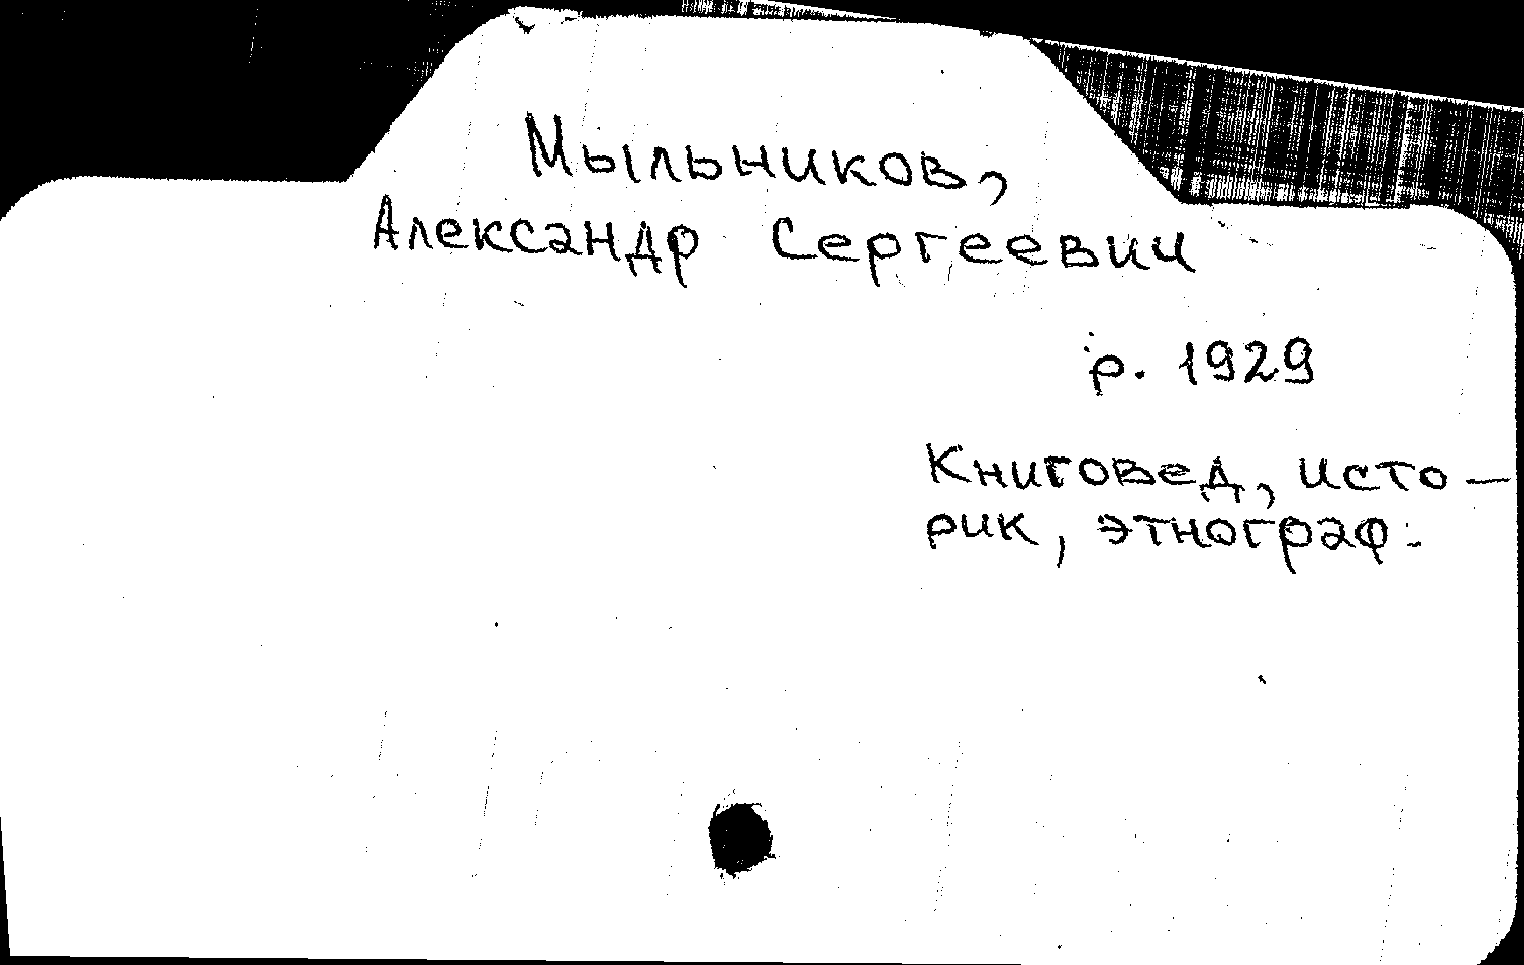 Мыльников,
Александр Сергеевич
р. 1929
Книговед, исто-
рик, этнограф.